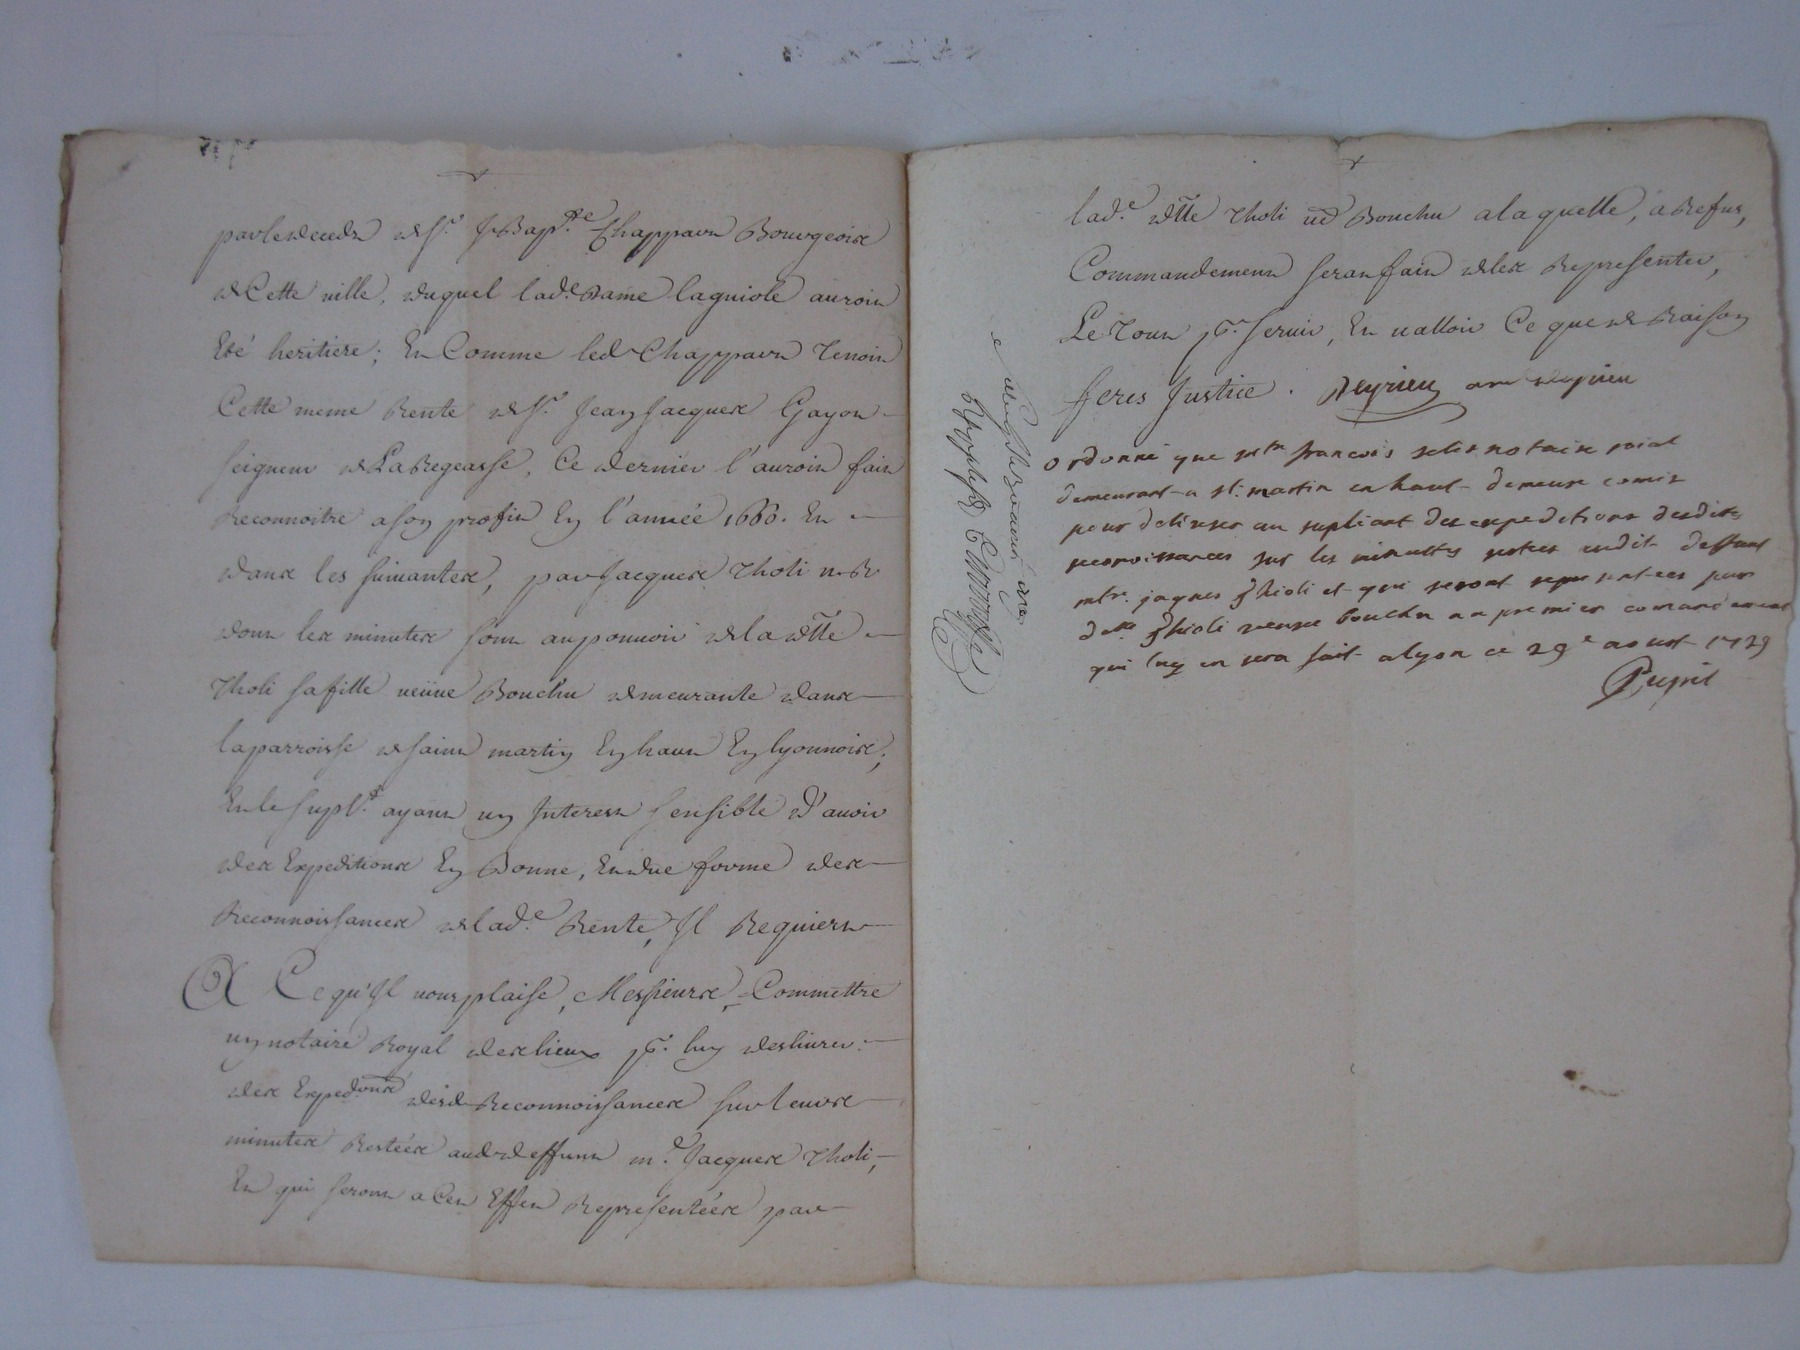 par le deceds de Sr. J. Bapt.e Chappard Bourgeois
de Cette ville, duquel lad.e Dame laguiole auroit
Eté heritiere; Et Comme led. Chappard Tenoit
Cette meme Rente de Sr. Jean Jacques Gayot
seigneur de La Bregeasse, Ce dernier l'auroit fait
Reconnoitre a son profit En l'année 1666. Et
dans les suivantes, par Jacques Tholi n.re R.
dont les minutes sont au pouvoir de la d.lle
Tholi sa fille veüve Bouchu demeurante dans
la parroisse de saint martin En haut En lyonnois;
Et le supl.t ayant un Interest sensible d'avoir
des Expeditions En Bonne, Et due forme des
Reconnoissances de lad.e Rente, Il Requiert
A Ce qu'Il vous plaise, Messieurs, Commettre
un notaire Royal des lieux pr. luy deslivrer
des Exped.ons desd. Reconnoissances sur leurs
minutes Restées aud. deffunt m.e Jacques Tholi,
Et qui seront a Cet Effet Representées par
lad.e d.lle Tholi v.e Bouchu a laquelle, a Refus,
Commandement sera fait de les Representer,
Le Tout pr. servir, Et valloir Ce que de Raison
feres Justice. Deyrieu
ordonné que mtre francois notaire roial
demeurant a st. martin en haut demeure comis
pour delivrer au supliant des expeditions desdites
reconnoissances sur les minuttes dudit deffunt
mtre. jaques Thioli et qui seront representees par
d.lle Thioli veuve bouchu au premier comandement
qui luy en sera fait a lyon ce 29e aoust 1729
Pupil